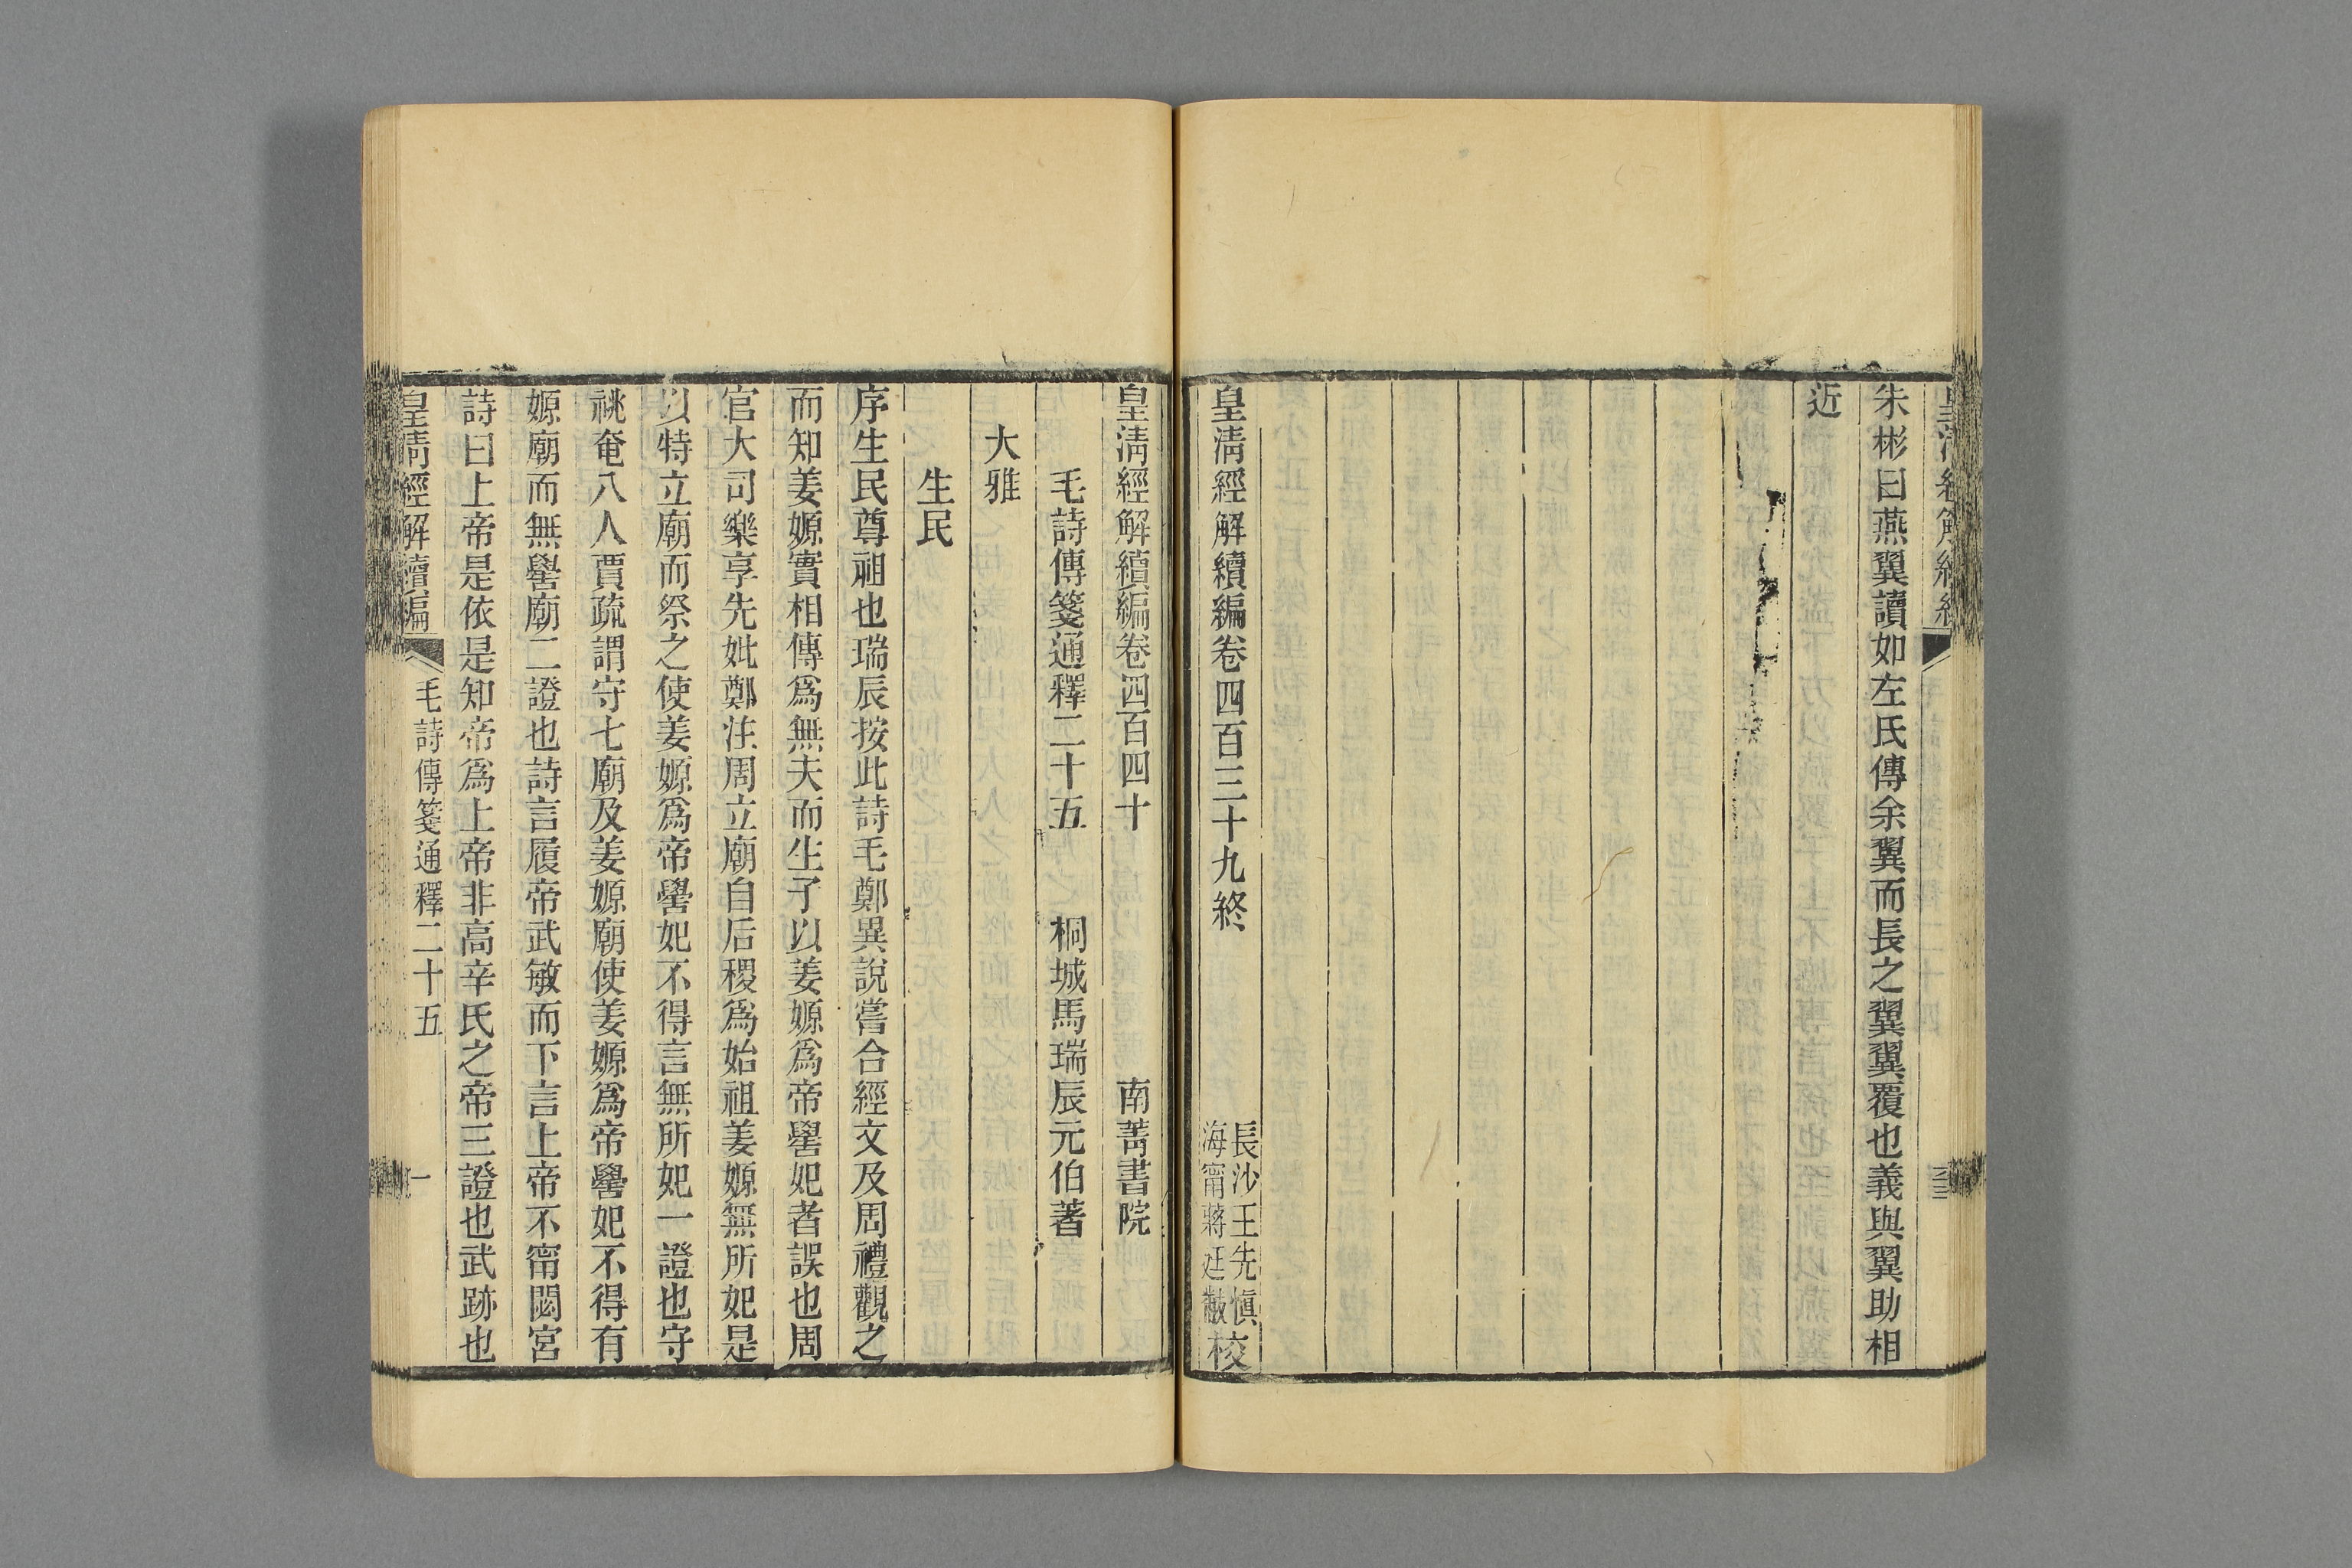 朱彬曰燕翼讀如左氏傳余翼而長之翼翼覆也義與翼助相
近
皇淸經解續編卷四百三十九終
長沙王先愼
海甯蔣廷黻校
皇淸經解續編卷四百四十 南菁書院
毛詩傳箋通釋二十五 桐城馬瑞辰元伯著
大雅
生民
序生民尊祖也瑞辰按此詩毛鄭異說嘗合經文及周禮觀之
而知姜嫄實相傳爲無夫而生子以姜嫄爲帝嚳妃者誤也周
官大司樂享先妣鄭注周立廟自后稷爲始祖姜嫄無所妃是
以特立廟而祭之使姜嫄爲帝嚳妃不得言無所妃一證也守
祧奄八人賈疏謂守七廟及姜嫄廟使姜嫄爲帝嚳妃不得有
嫄廟而無嚳廟二證也詩言履帝武敏而下言上帝不甯閟宮
詩曰上帝是依是知帝爲上帝非高辛氏之帝三證也武跡也
皇淸經解續編 毛詩傳箋通釋二十五 一